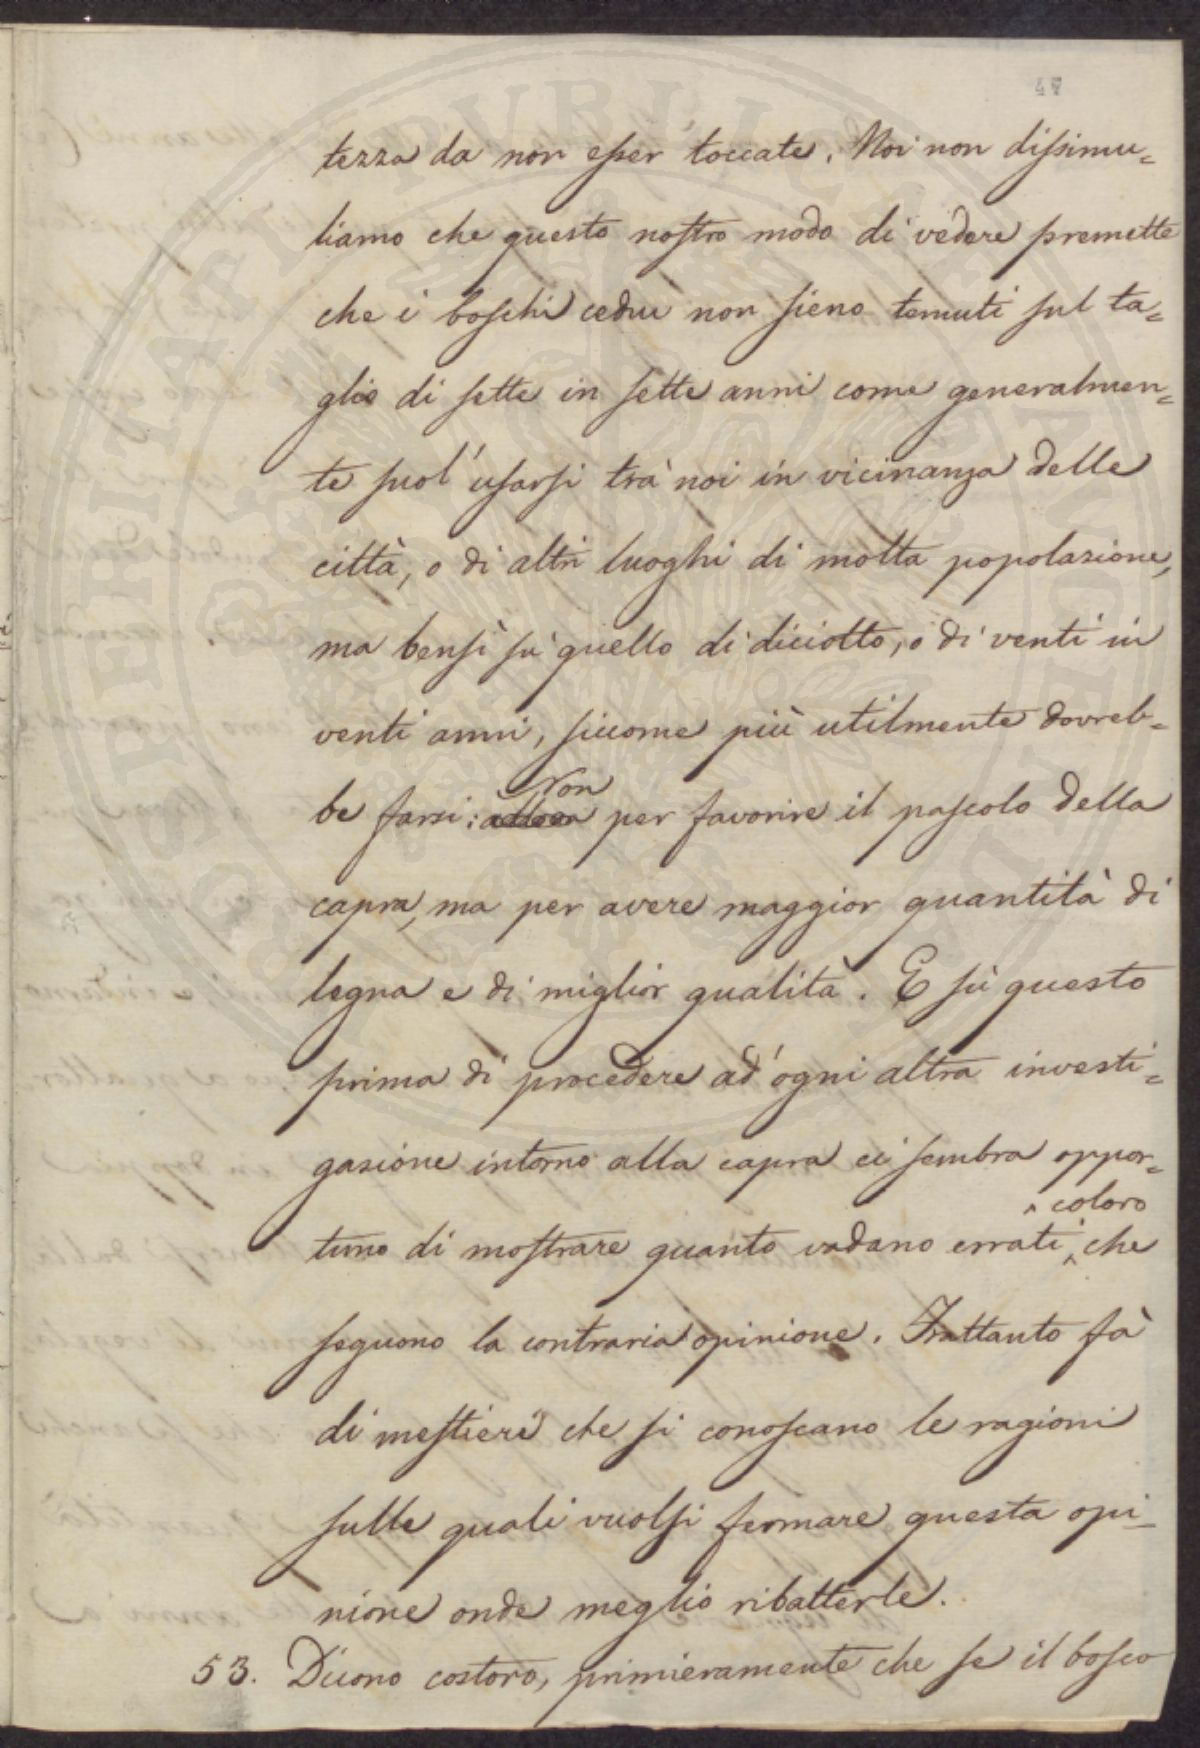 47
tezza da non esser toccate. Noi non dissimu=
liamo che questo nostro modo di vedere premette
che i boschi cedui non sieno tenuti sul ta=
glio di sette in sette anni come generalmen=
te suol' usarsi trà noi in vicinanza delle
città, o di altri luoghi di molta popolazione,
ma bensì sù quello di diciotto, o di venti in
venti anni, siccome più utilmente dovreb=
Non
be farsi: per favorire il pascolo della
capra, ma per avere maggior quantità di
legna e di miglior qualità. E sù questo
prima di procedere ad' ogni altra investi=
gazione intorno alla capra ci sembra oppor=
^ coloro
tuno di mostrare quanto vadano errati ^ che
seguono la contraria opinione. Frattanto fà
di mestieri che si conoscano le ragioni
sulle quali vuolsi fermare questa opi=
nione onde meglio ribatterle.
53. Dicono costoro, primieramente che se il bosco
PERITATI PUBLICAE AUGENDAE